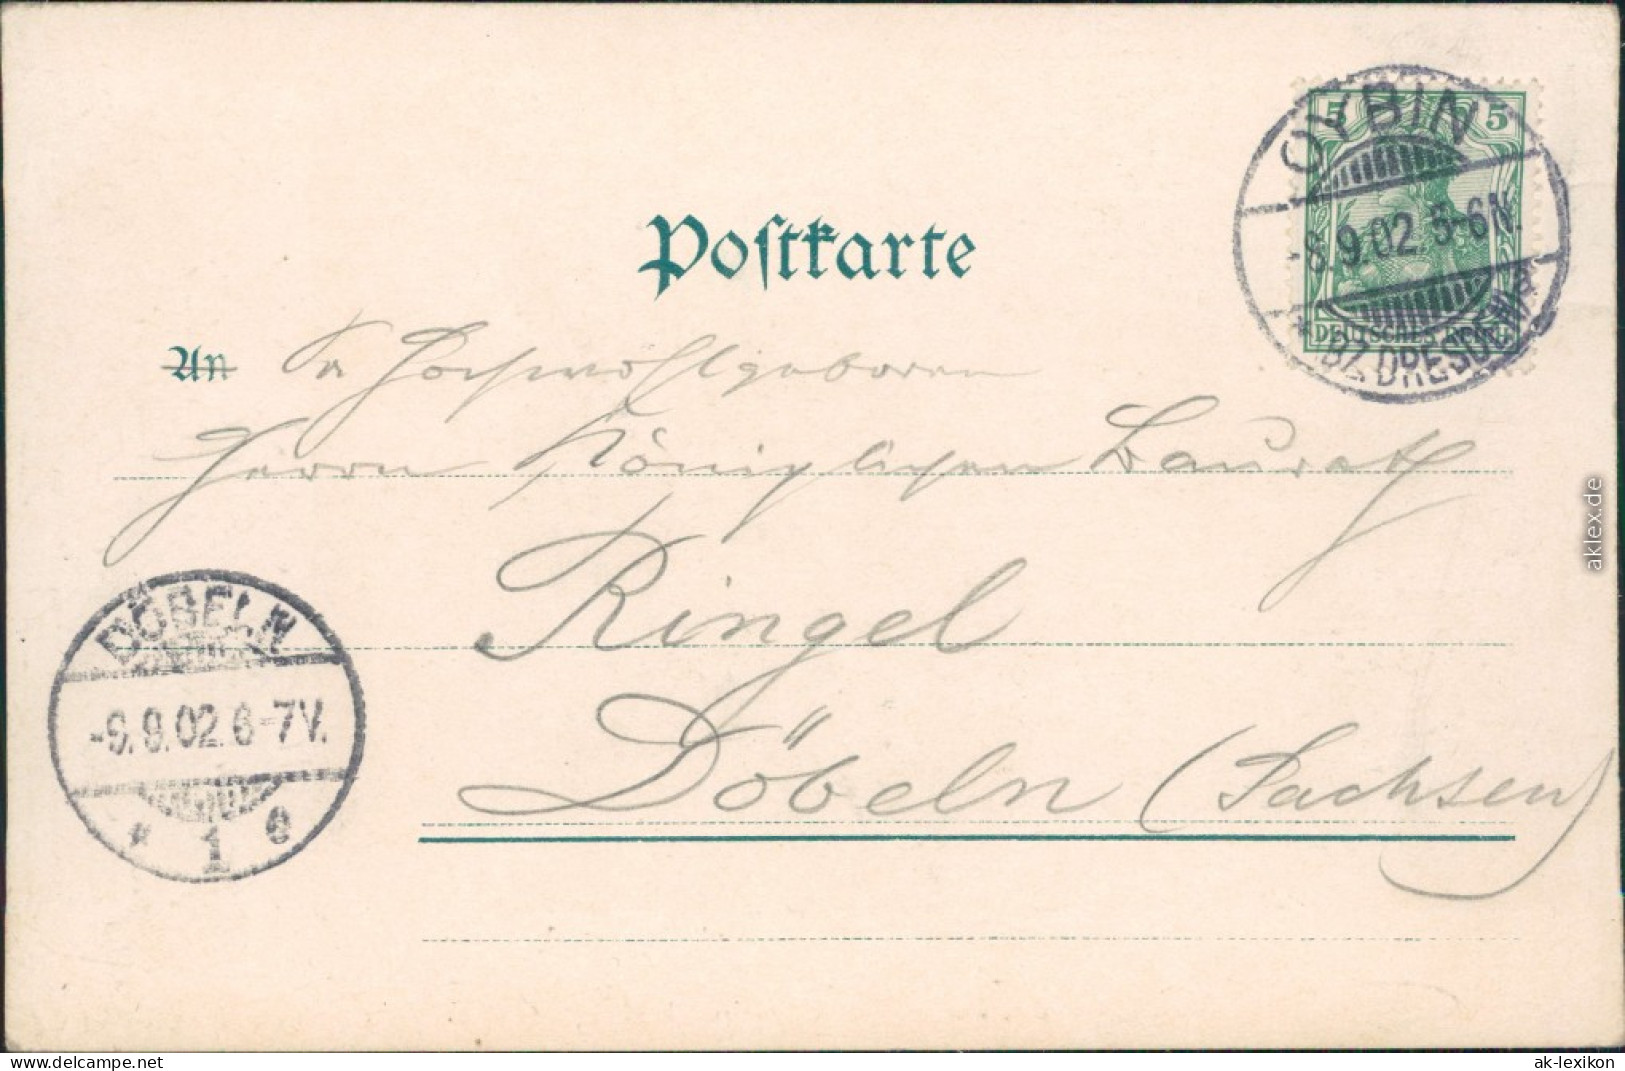 OYBIN
5 5
-8.9.02. 5-6N.
DEUTSCHES REICH
* (BZ. DRESDEN) *
Postkarte
An Sr Hochwohlgeboren
Herrn Königlichen Baurath
Ringel
Döbeln (Sachsen)
DÖBELN
-9.9.02. 6-7V.
* 1 e
aklex.de
www.delcampe.net
ak-lexikon